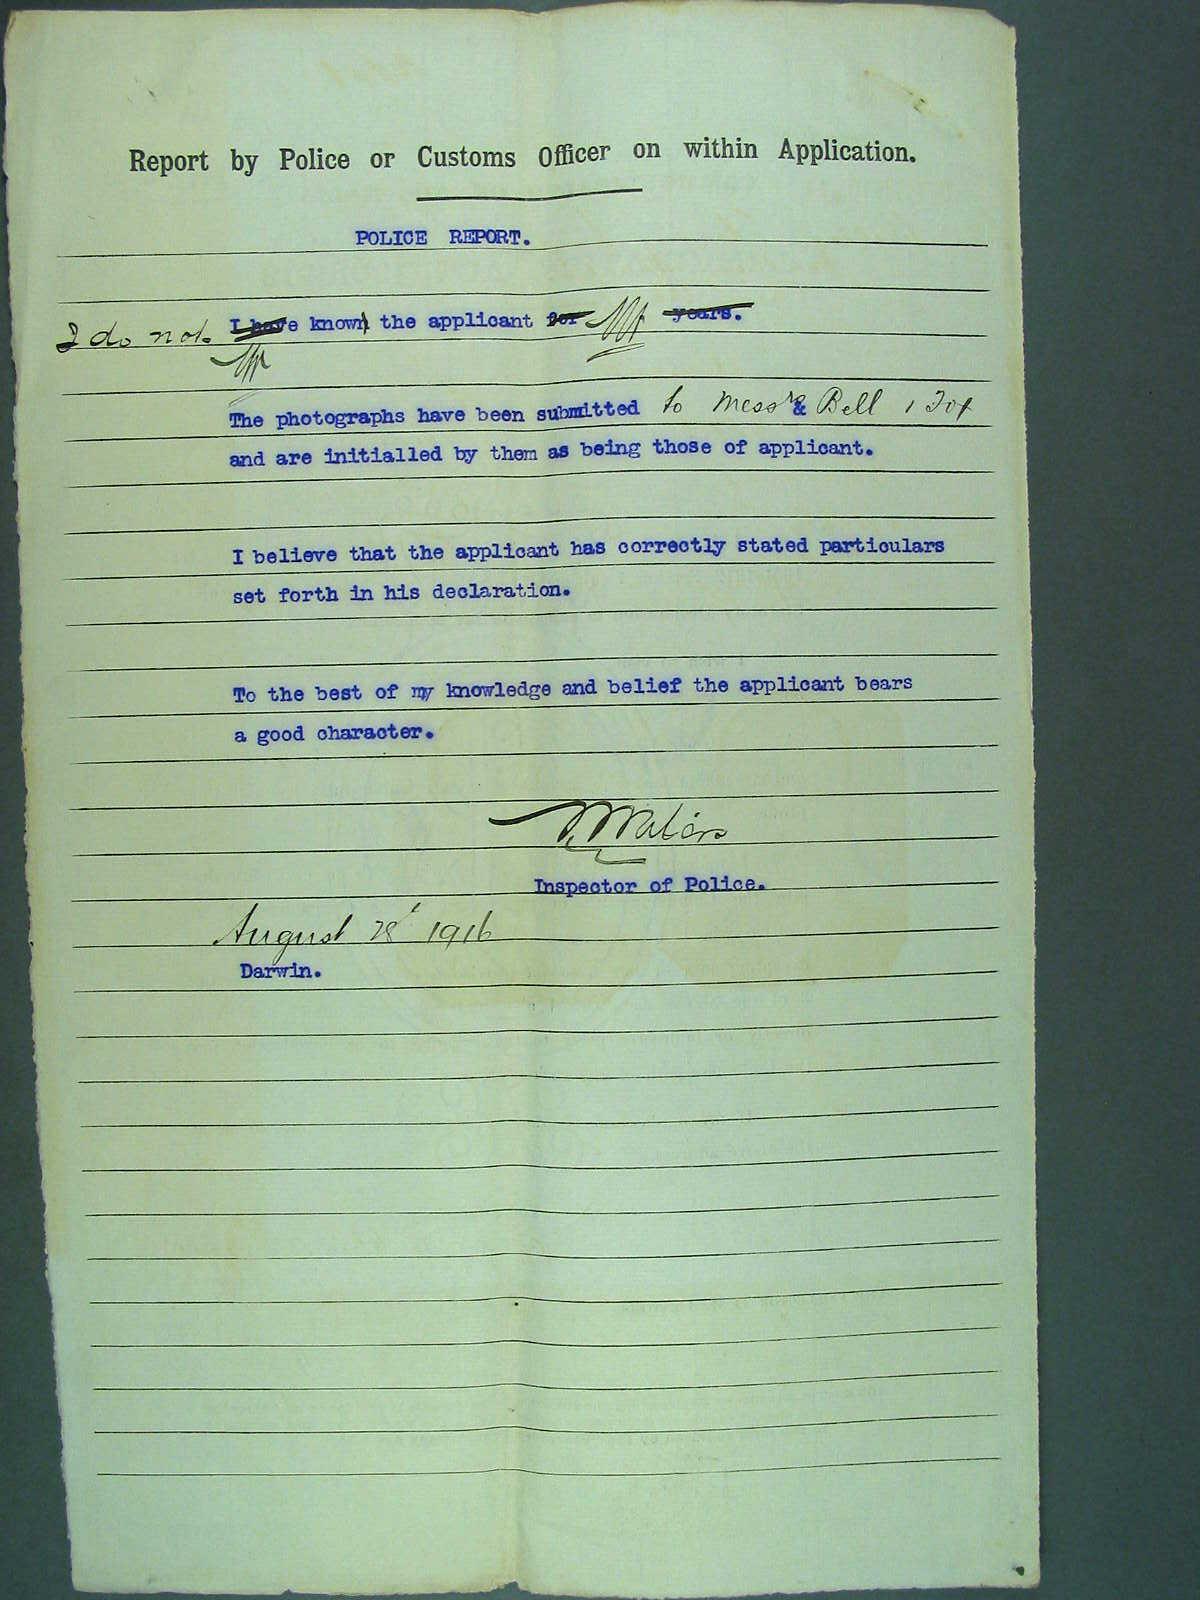 Report by Police or Customs Officer on within Application.
POLICE REPORT.
I do not I have known the applicant for years.
The photographs have been submitted to Messrs & Bell
and are initialled by them as being those of applicant.
I believe that the applicant has correctly stated particulars
set forth in his declaration.
To the best of my knowledge and belief the applicant bears
a good character.
Waters
Inspector of Police.
August 28 1916
Darwin.